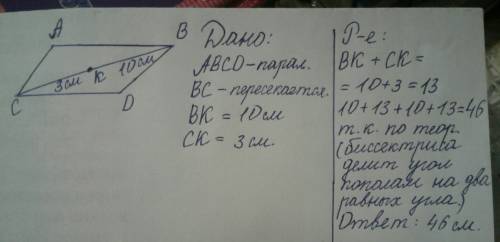 A
B
10см
к
3см
C
D
Дано:
ABCD-парал.
BC-пересекается.
BK = 10см
CK = 3см.
Р-е:
BK + CK =
= 10+3 = 13
10+13+10+13=46
т.к. по теор.
(биссектриса
делит угол
пополам на два
равных угла)
Ответ: 46 см.